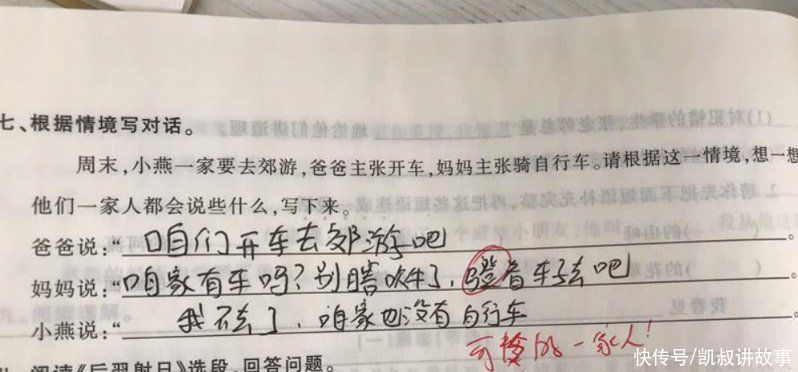 七、根据情境写对话。
周末,小燕一家要去郊游,爸爸主张开车,妈妈主张骑自行车。请根据这一情境,想一想
他们一家人都会说些什么,写下来。
爸爸说:“咱们开车去郊游吧。
妈妈说:“咱家有车吗?别瞎吹牛了,蹬着车子去吧。
小燕说:“我不去了,咱家也没有自行车。
可怜的一家人!
阅读《后羿射日》选段,回答问题。
快传号/凯叔讲故事